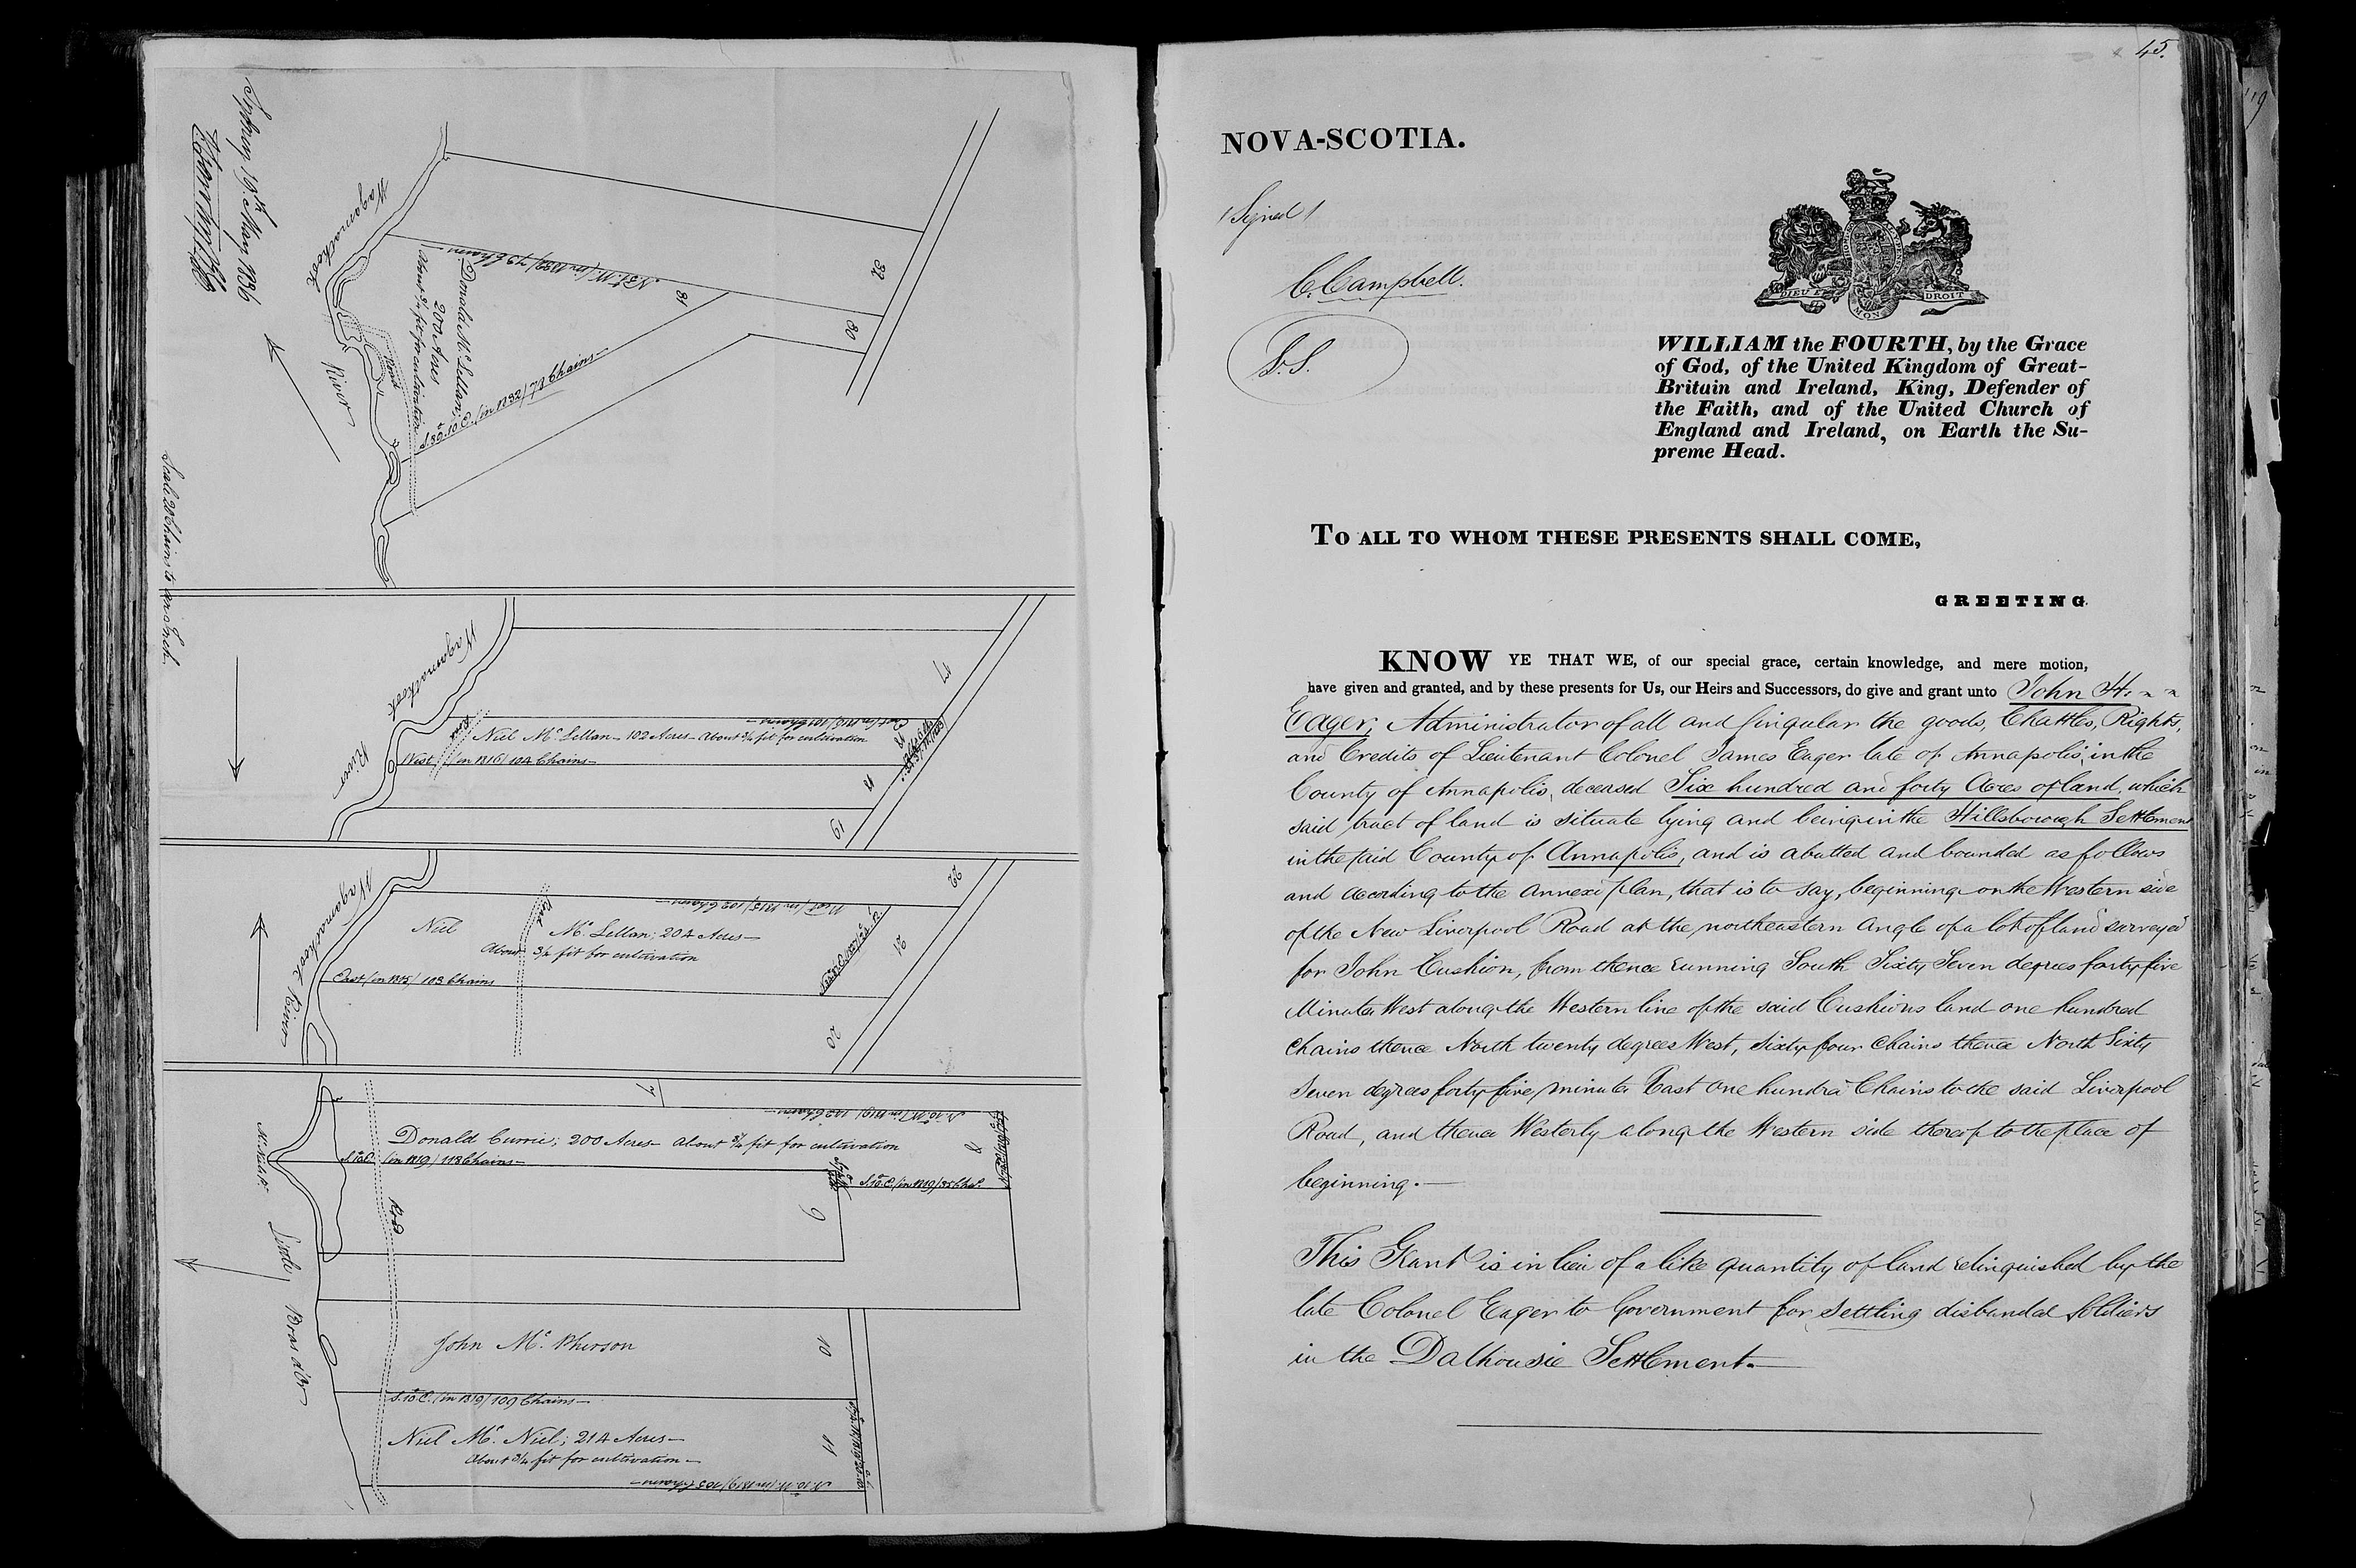 Sydney 19th May 1836
Scale 20 Chains to an Inch.
Wagamatkook
River
Road
32
31
30
N 31° W. (in 1832) 73 Chains
Donald McLellan;
200 Acres
About 3/4 fit for cultivation
S. 30° 10' E. (in 1832) 74 Chains
Wagamatkook
River
Road
17
18
19
East (in 1816) 101 Chains
Niel McLellan 102 Acres About 3/4 fit for cultivation
West (in 1816) 104 Chains
Wagamatkook River
Road
22
21
20
West (in 1815) 102 Chains
Niel McLellan; 204 Acres
About 3/4 fit for cultivation
East (in 1815) 103 Chains
Little Bras d'Or
Road
7
8
9
10
11
N. 10° W. (in 1819) 142 Chains
Donald Currie; 200 Acres About 3/4 fit for cultivation
S. 10° E. (in 1819) 118 Chains
S. 10° E. (in 1819) 35 Chs.
John McPherson
S. 10° E. (in 1819) 109 Chains
Niel McNiel; 214 Acres
About 3/4 fit for cultivation
N. 10° W. (in 1819) 105 Chains
45.
NOVA-SCOTIA.
(Signed)
C. Campbell.
L.S.
DIEU ET MON DROIT
WILLIAM the FOURTH, by the Grace
of God, of the United Kingdom of Great-
Britain and Ireland, King, Defender of
the Faith, and of the United Church of
England and Ireland, on Earth the Su-
preme Head.
TO ALL TO WHOM THESE PRESENTS SHALL COME,
GREETING.
KNOW YE THAT WE, of our special grace, certain knowledge, and mere motion,
have given and granted, and by these presents for Us, our Heirs and Successors, do give and grant unto John H.
Eager, Administrator of all and Singular the goods, Chattles, Rights,
and Credits of Lieutenant Colonel James Eager late of Annapolis, in the
County of Annapolis, deceased Six hundred and forty Acres of land, which
said tract of land is situate lying and being in the Hillsborough Settlement
in the said County of Annapolis, and is abutted and bounded as follows
and according to the annexed plan, that is to say, beginning on the Western side
of the New Liverpool Road at the northeastern angle of a lot of land surveyed
for John Cushion, from thence running South Sixty Seven degrees forty five
Minutes West along the Western line of the said Cushions land one hundred
Chains thence North twenty degrees West, Sixty four Chains thence North Sixty
Seven degrees forty five minutes East One hundred Chains to the said Liverpool
Road, and thence Westerly along the Western side thereof to the place of
beginning.
This Grant is in lieu of a like quantity of land relinquished by the
late Colonel Eager to Government for settling disbanded Soldiers
in the Dalhousie Settlement.